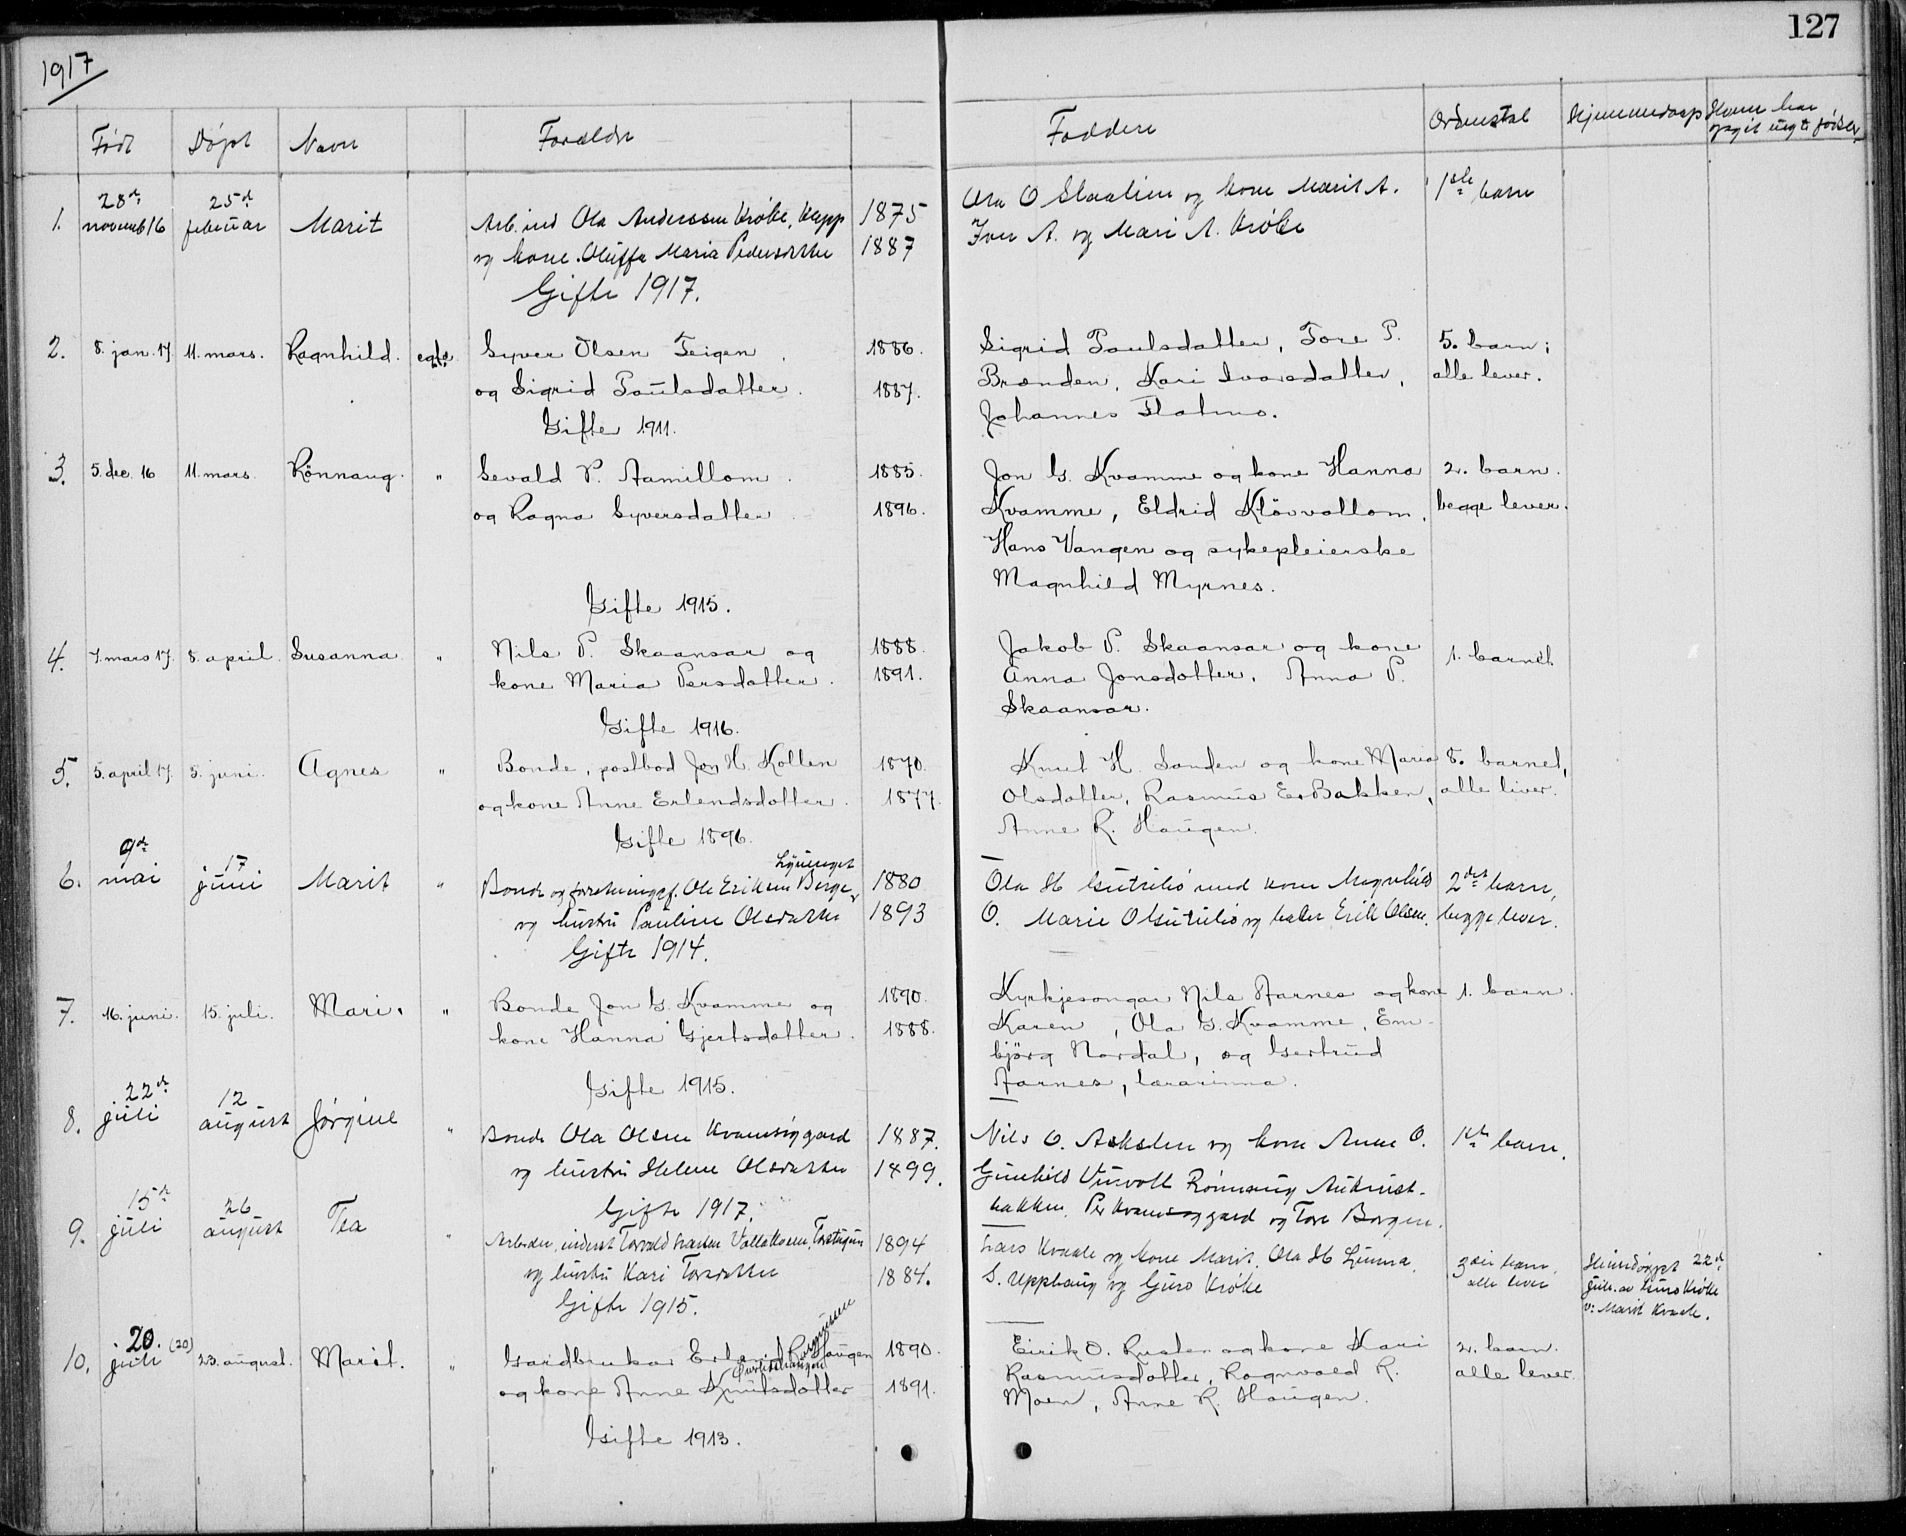 127
1917
Født Døpt Navn Forældre Faddere Ordenstal Hjemmedaap
1. 28de novemb 16 25de februar Marit Arb. ind Ola Anderssen Krøke, Klepp 1875 Ola O Skaalien og kone Marit A. 1ste barn
og kone Oluffa Maria Pedersdatter 1887 Iver A. og Mari A. Krøke
Gifte 1917.
2. 8. jan. 17 11. mars. Ragnhild. egte Syver Olsen Teigen 1886. Sigrid Paulsdatter, Tore P. 5. barn;
og Sigrid Paulsdatter. 1887. Brænden, Kari Ivarsdatter, alle lever.
Gifte 1911. Johannes Flatmo.
3. 5. dec. 16 11. mars. Rønnaug. " Sevald P. Aamillom 1885. Jon G. Kvamme og kone Hanna 2. barn.
og Ragna Syversdatter 1896. Kvamme, Eldrid Kløvvollom, begge lever.
Hans Vangen og sykepleierske
Magnhild Myrnes.
Gifte 1915.
4. 7. mars 17. 8. april. Susanna " Nils P. Skaansar og 1888. Jakob P. Skaansar og kone 1. barnet.
kone Maria Persdatter. 1891. Anna Jonsdotter. Anna P.
Skaansar.
Gifte 1916.
5. 5. april 17. 3. juni. Agnes " Bonde, postbod Jon H. Kollen 1870. Knut H. Sanden og kone Maria 8. barnet,
og kone Anne Erlendsdotter. 1877. Olsdotter, Rasmus E. Bakken, alle liver.
Anne R. Haugen.
Gifte 1896.
6. 9de mai 17 juni Marit " Bonde og forretningsf. Ole Eriksen Berge 1880 Ola H Gutulia med kone Magnhild 2det barn,
og hustru Pauline Olsdatter 1893 O. Marie O Gutulia og Erik Olsen. begge lever.
Gifte 1914.
7. 16. juni. 15. juli. Mari. " Bonde Jon G. Kvamme og 1890. Kyrkjesongar Nils Aarnes og kone 1. barn.
kone Hanna Gjertsdotter. 1888. Karen, Ola G. Kvamme, Em-
bjørg Nordal, og Gertrud
Aarnes, lærarinna.
Gifte 1915.
8. 22de juli 12 august Jørgine " Bonde Ola Olsen Kvamsøygard 1887. Nils O. og kone Anne O. 1ste barn.
og hustru Helene Olsdatter 1899. Gunhild Rønnaug
Gifte 1917. bakken, Per Kvamsøygard og Tore Borgen.
9. 15de juli 26 august Tea " Arbeider, inderst Torvald 1894 Lars Kvaale og kone Marit. Ola H Linna 3die barn,
og hustru Kari Toresdatter 1884. S. Upphaug og Guro Krøke alle lever
Gifte 1915. Hjemdøypt 22de juli. av Guro Krøke
v: Marit Kvaale.
10. 20. juli (20) 23. august. Marit. " Gardbrukar Erlend Rasmussen Haugen 1890. Eirik O. Rusten og kone Kari 2. barn.
og kone Anne Knutsdotter 1891. Rasmusdotter, Ragnvald R. alle lever.
Moen, Anne R. Haugen.
Gifte 1913.